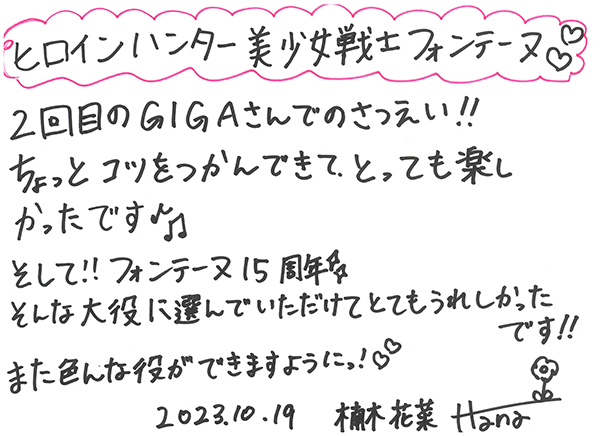 ヒロインハンター美少女戦士フォンテーヌ♡♡
2回目のGIGAさんでのさつえい!!
ちょっとコツをつかんできて、とっても楽し
かったです♪♫
そして!! フォンテーヌ15周年☆☆
そんな大役に選んでいただけてとてもうれしかった
です!!
また色んな役ができますようにっ!♡♡
2023.10.19 楠木花菜 Hana